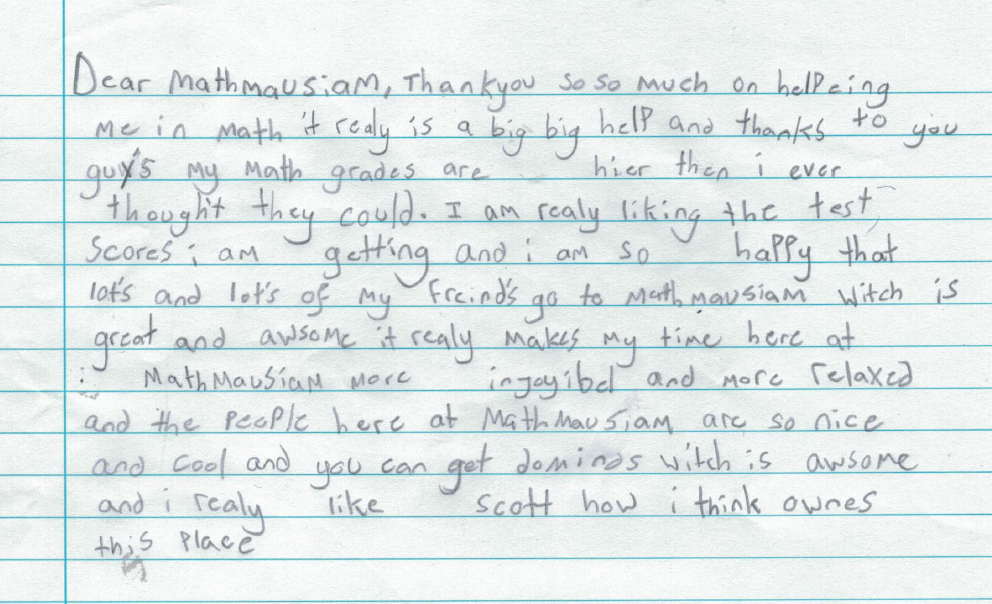 Dear Mathmausiam, Thankyou so so much on helpeing
me in math it realy is a big big help and thanks to you
guy's my math grades are hier then i ever
thought they could. I am realy liking the test
scores i am getting and i am so happy that
lot's and lot's of my freind's go to mathmausiam witch is
great and awsome it realy makes my time here at
Mathmausiam more injoyibel and more relaxed
and the people here at Mathmausiam are so nice
and cool and you can get dominos witch is awsome
and i realy like scott how i think ownes
this place